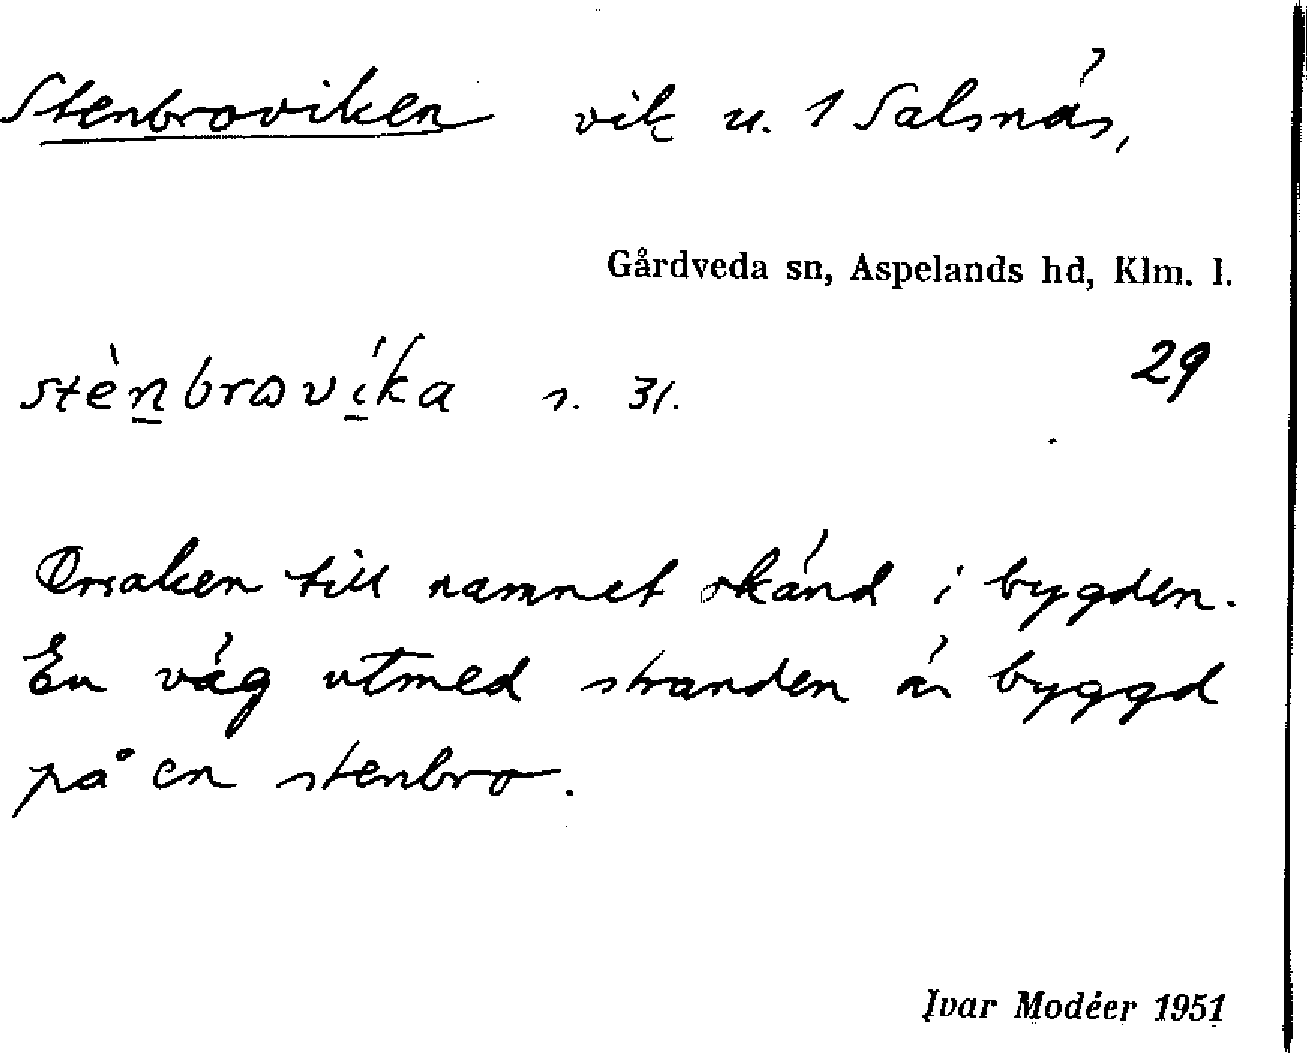 Stenbroviken vik u. 1 Salsnäs,
Gårdveda sn, Aspelands hd, Klm. l.
stènbrovíka s. 31. 29
Orsaken till namnet okänd i bygden.
En väg utmed stranden är byggd
på en stenbro.
Ivar Modéer 1951